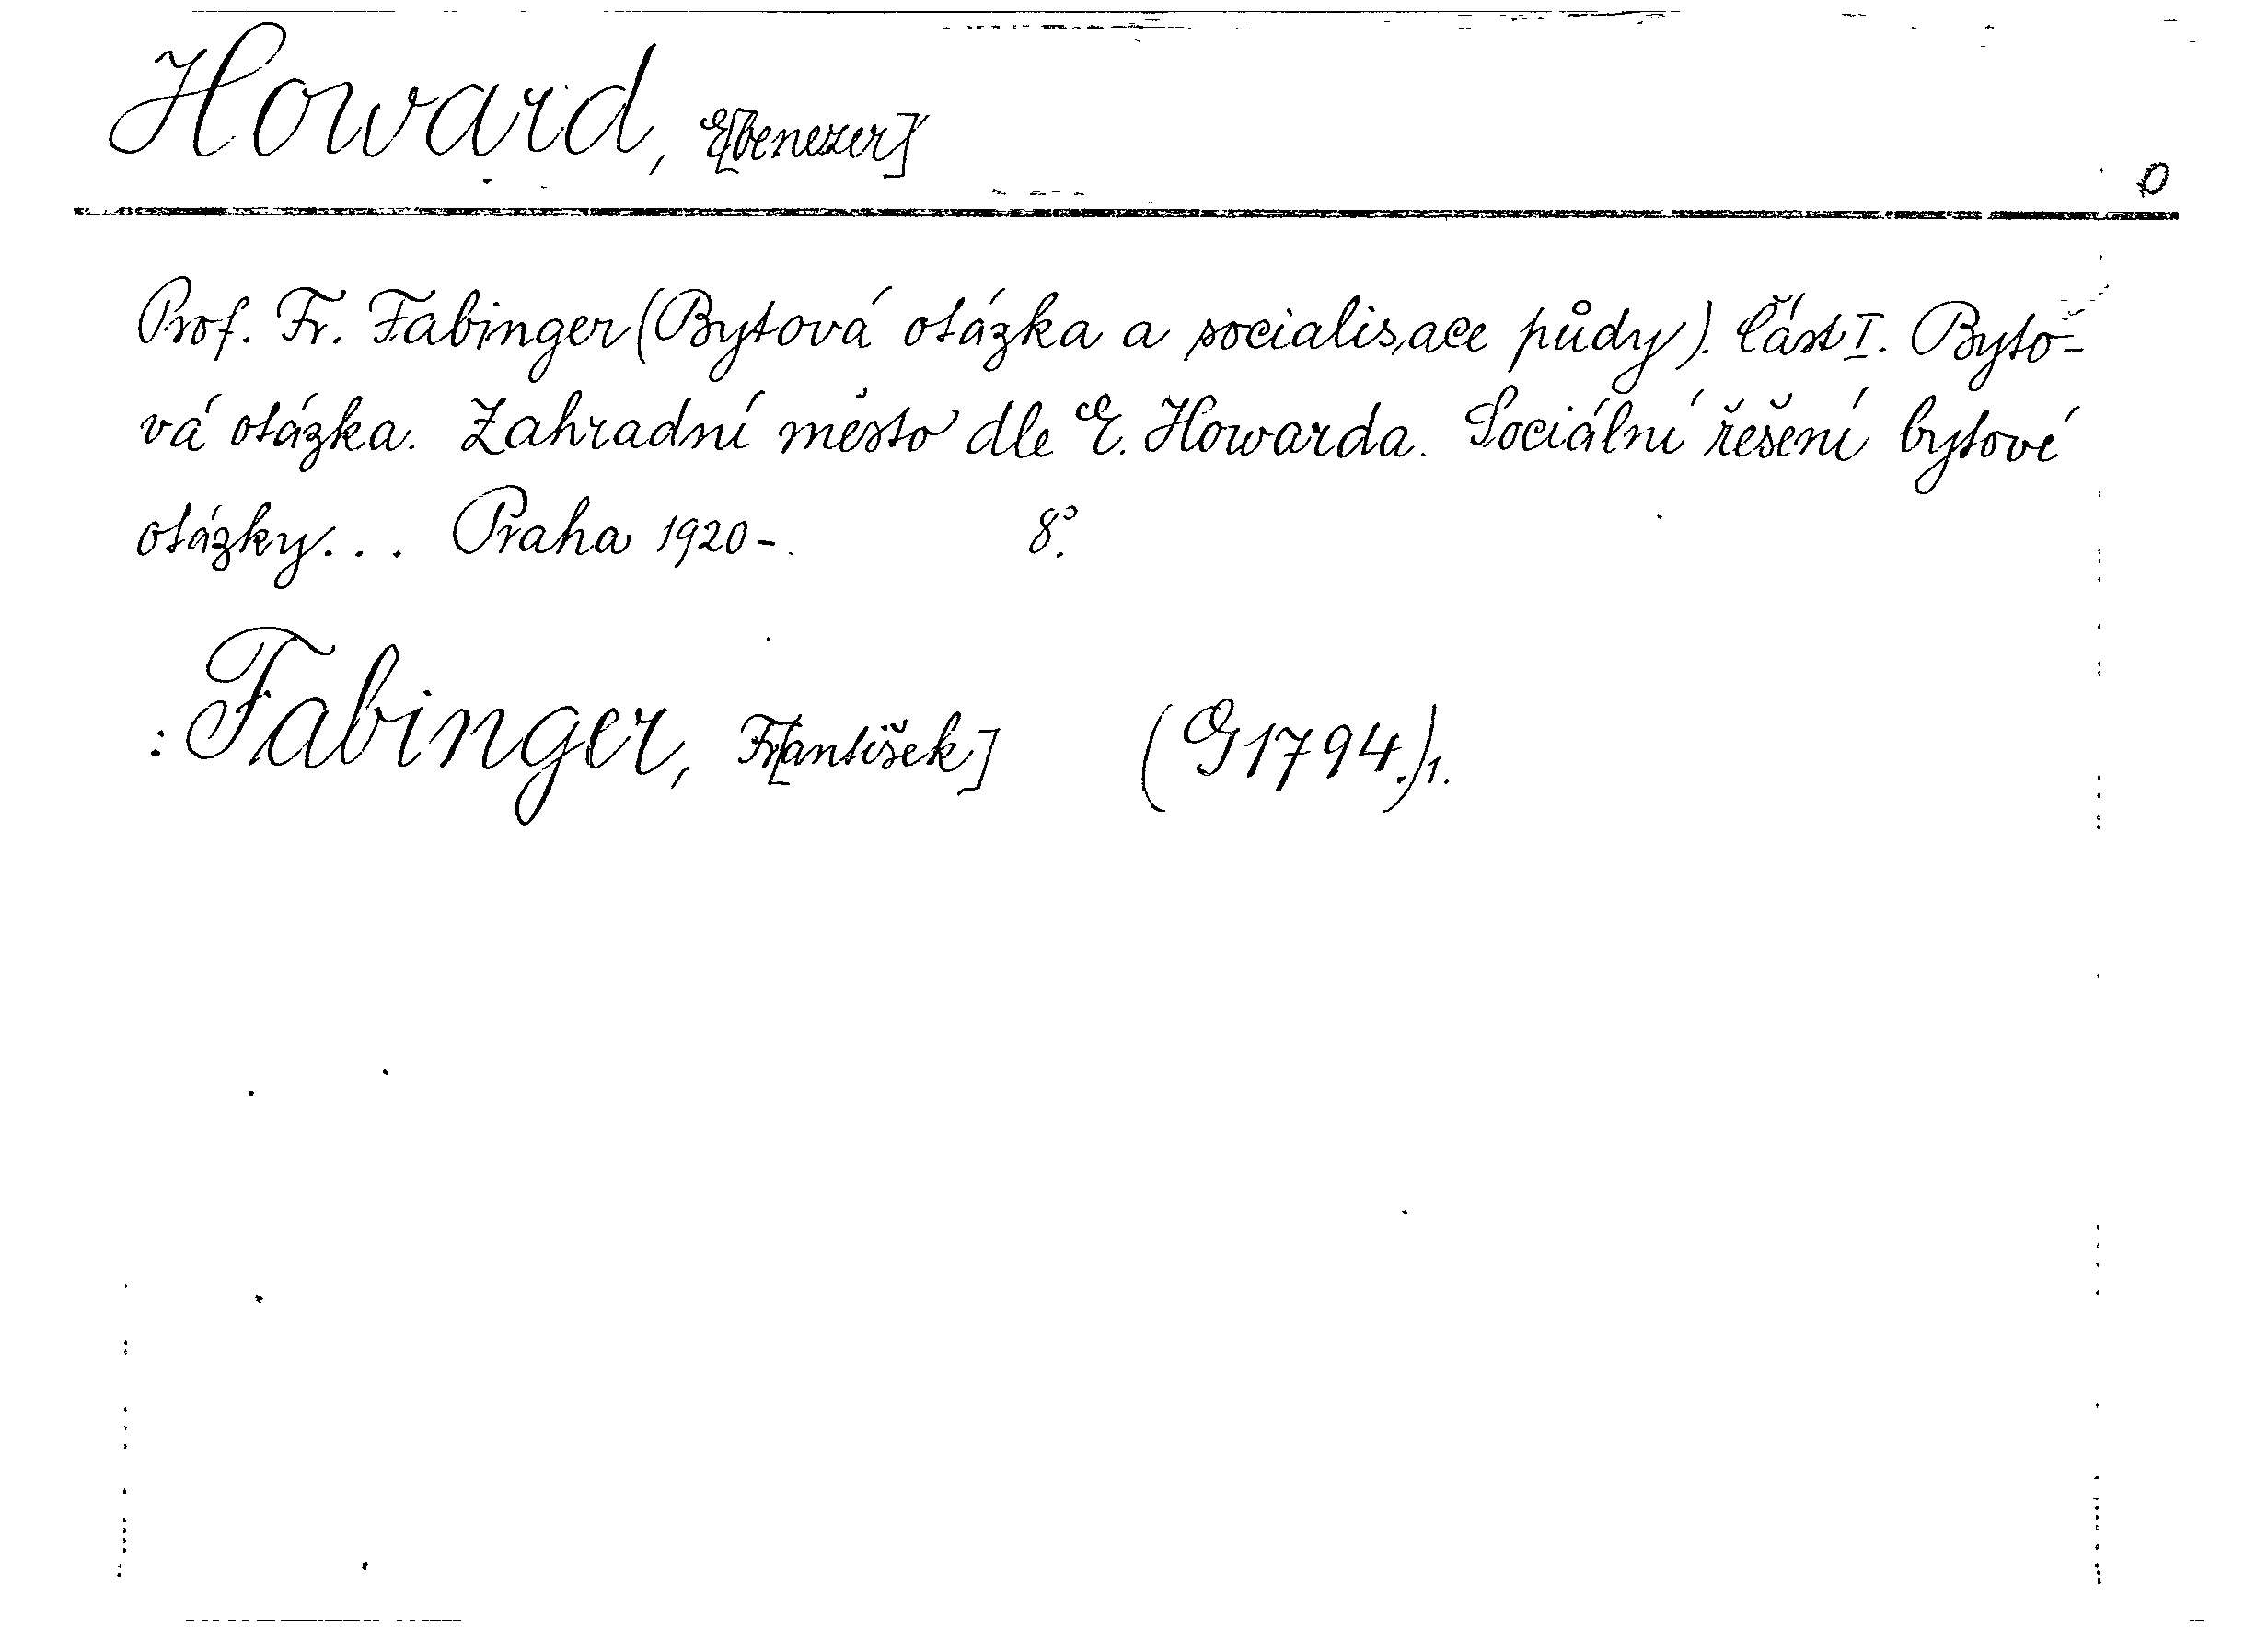 Howard, E[benezer]
O
Prof. Fr. Fabinger (Bytová otázka a socialisace půdy). Část I. Byto-
vá otázka. Zahradní město dle E. Howarda. Sociální řešení bytové
otázky... Praha 1920-. 8°.
: Fabinger, Fr[antišek] (G 1794.)1.